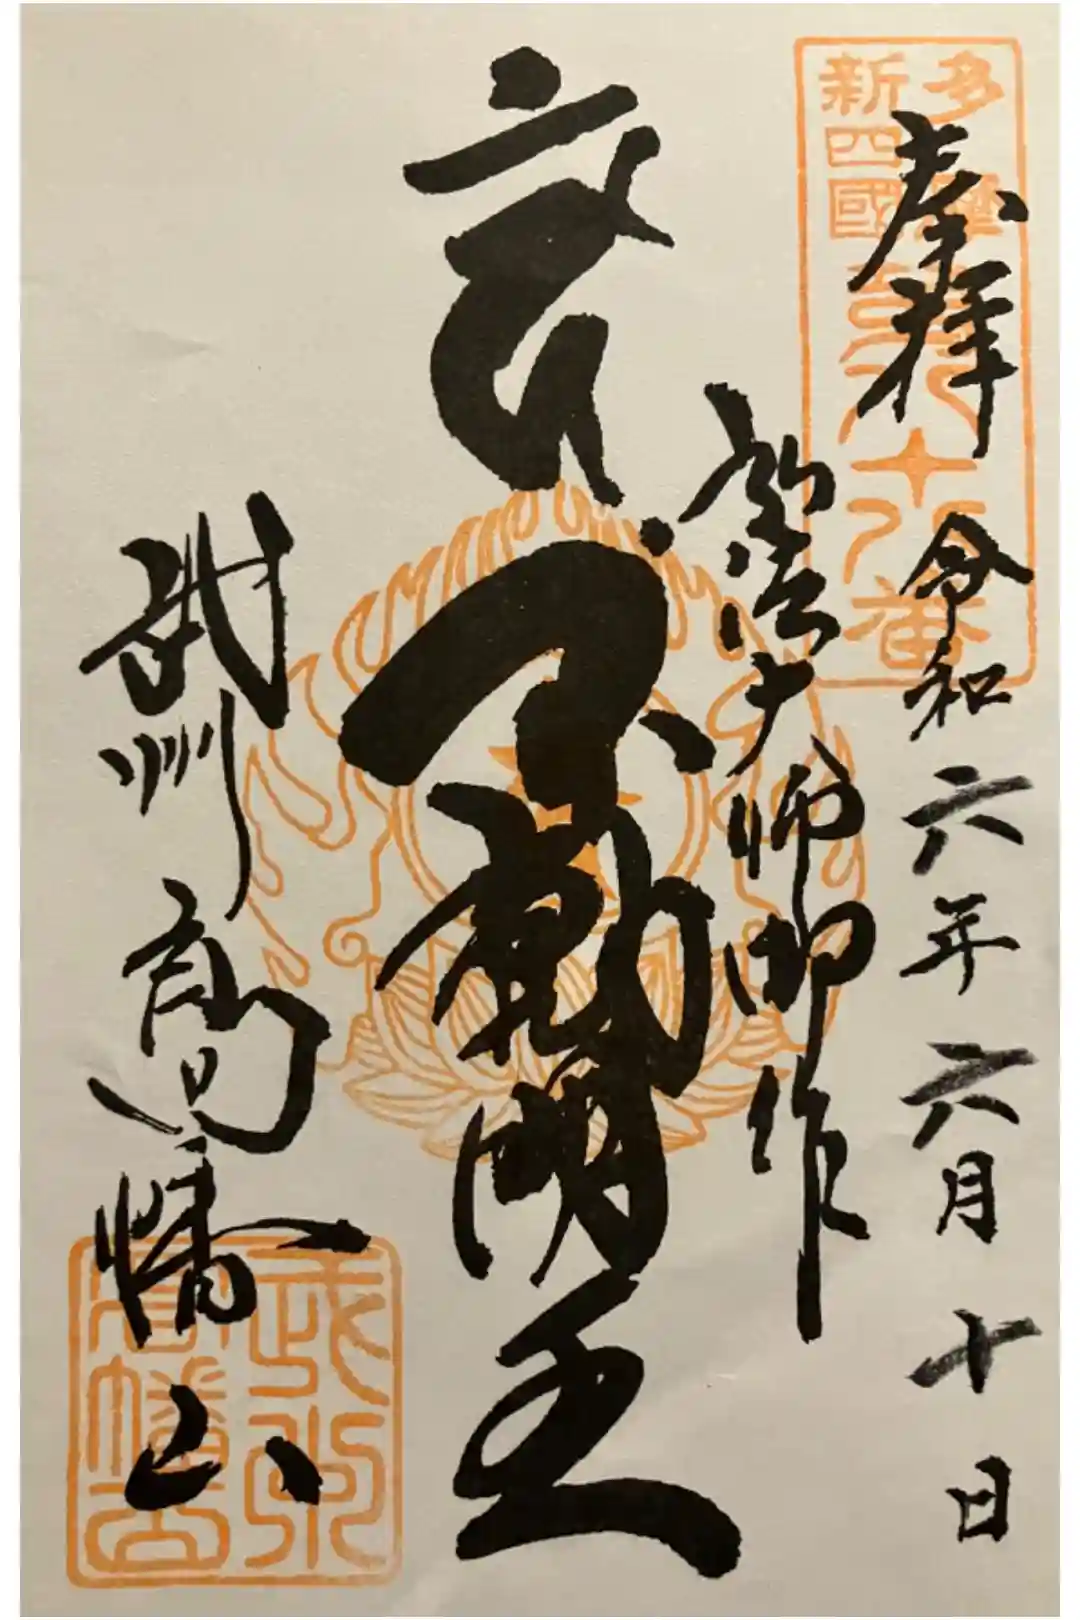 多摩
新四國
第八十八番
奉拝 令和六年六月十日
弘法大師御作
不動明王
武州高幡山
武州
高幡山